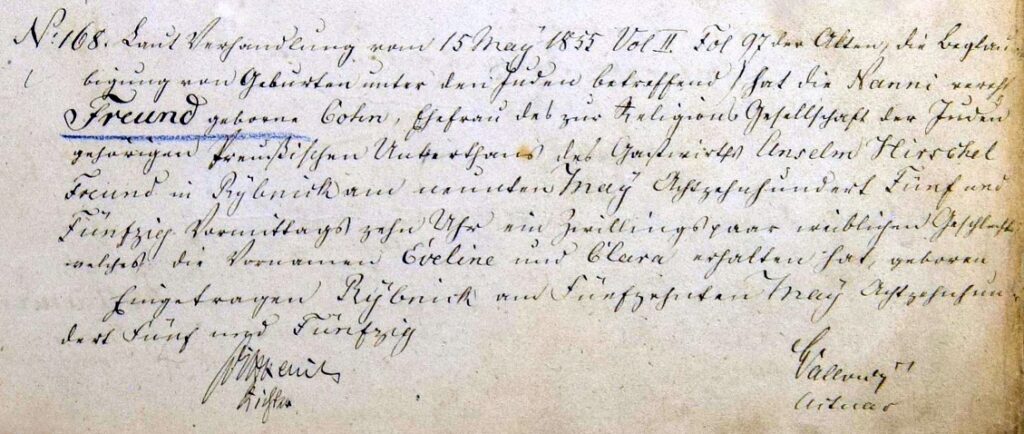 No: 168. Laut Verhandlung vom 15 May 1855 Vol II Fol 97 der Akten, die Beglau-
bigung von Geburten unter den Juden betreffend) hat die Nanni verehl
Freund geborne Cohn, Ehefrau des zur Religions Gesellschaft der Juden
gehörigen Preußischen Unterthans des Gastwirths Anselm Hirschel
Freund in Rybnick am neunten May Achtzehnhundert Fünf und
Fünfzig Vormittags zehn Uhr ein Zwillingspaar weiblichen Geschlechts
welches die Vornamen Eveline und Clara erhalten hat, geboren
Eingetragen Rybnick am Fünfzehnten May Achtzehnhun-
dert Fünf und Fünfzig
Richter
Actuar